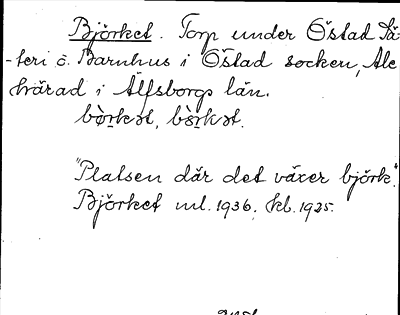 Björket. Torp under Östad Sä-
-teri o. Barnhus i Östad socken, Ale
härad i Älfsborgs län.
bø̀rkət, bə̀rkət.
"Platsen där det växer björk".
Björket ml. 1936, kbl. 1925.